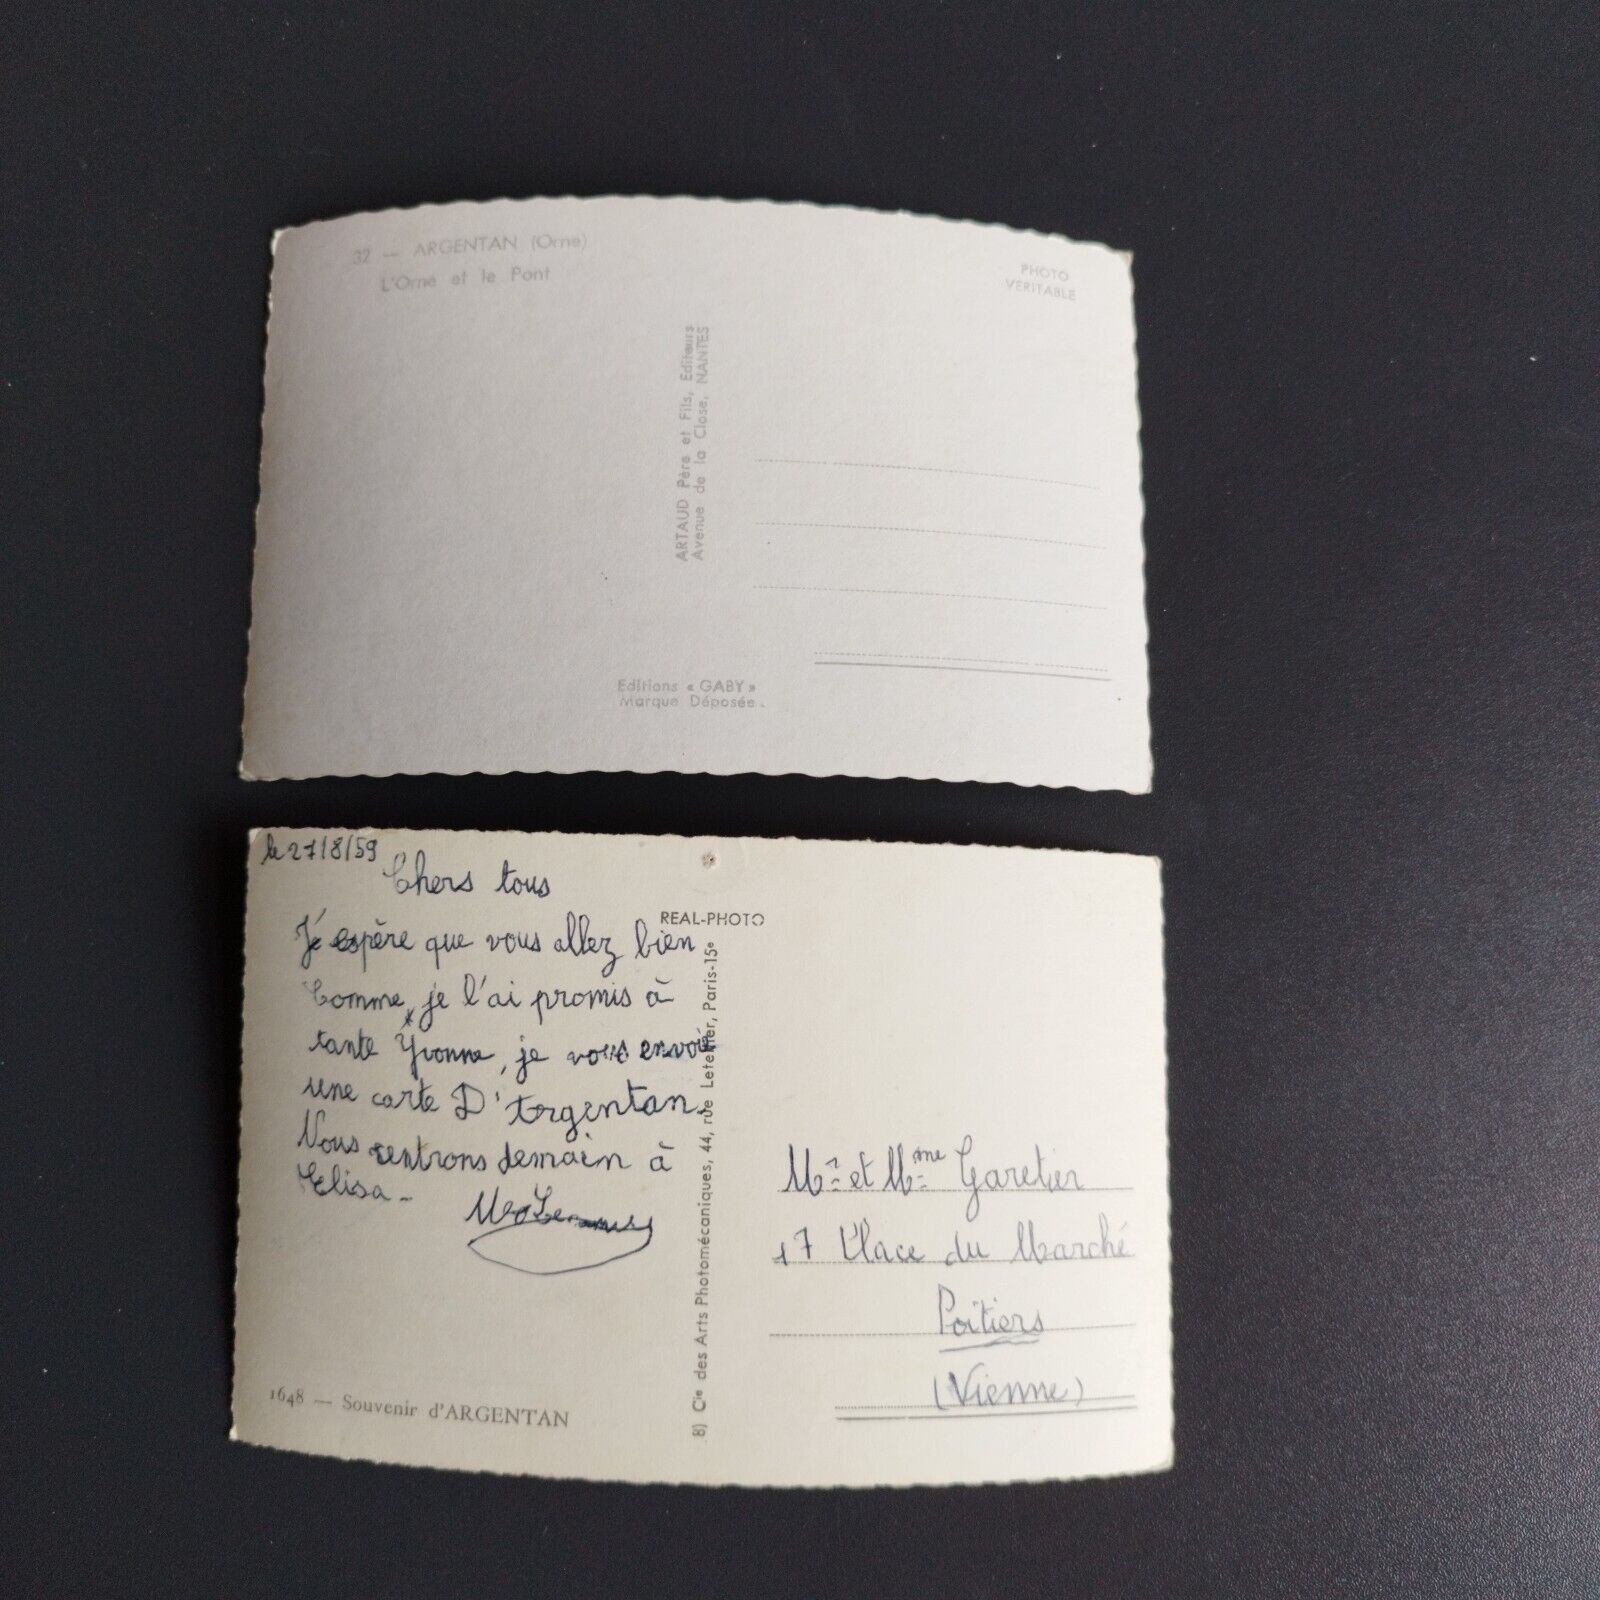 32 — ARGENTAN (Orne)
L'Orne et le Pont
PHOTO
VERITABLE
ARTAUD Père et Fils, Editeurs
Avenue de la Close, NANTES
Editions « GABY »
Marque Déposée.
le 27/8/59
Chers tous
J'espère que vous allez bien
Comme, je l'ai promis à
tante Yvonne, je vous envoie
une carte D'Argentan.
Nous rentrons demain à
Elisa -
REAL-PHOTO
8) Cie des Arts Photomécaniques, 44, rue Letellier, Paris-15e
Mr et Mme Garetier
17 Place du Marché
Poitiers
(Vienne)
1648 — Souvenir d'ARGENTAN